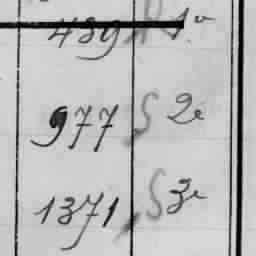 489 1º
977 S 2e
1371 S 3e